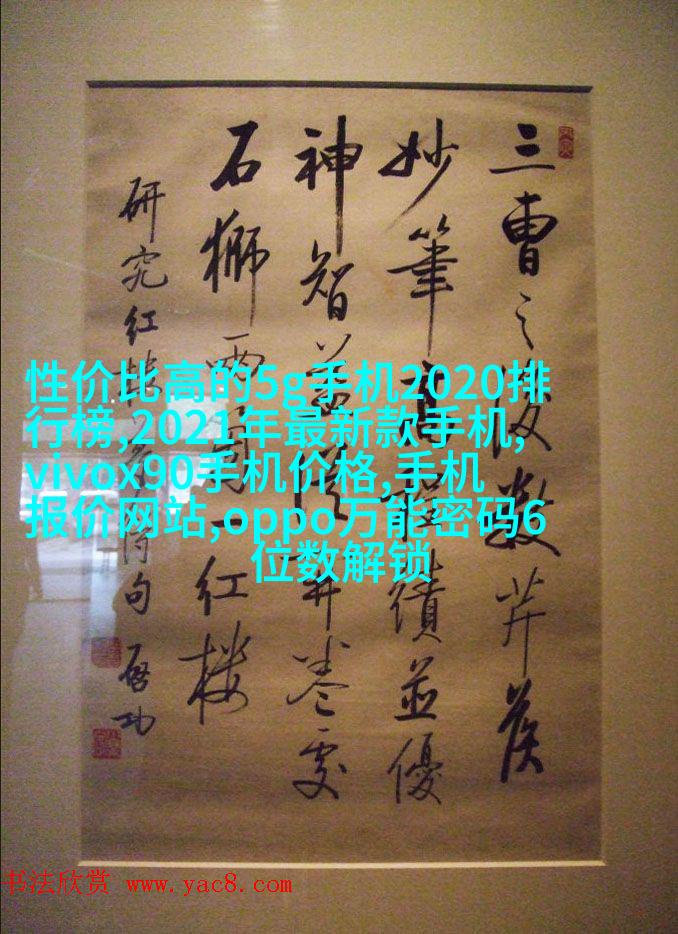 三曹之後数芹侯
妙筆高績並優
神智益開卷處
石獅兩一红楼
研究红楼句 啓功
性价比高的5g手机2020排
行榜,2021年最新款手机,
vivox90手机价格,手机
报价网站,oppo万能密码6
位数解锁
书法欣赏 www.yac8.com